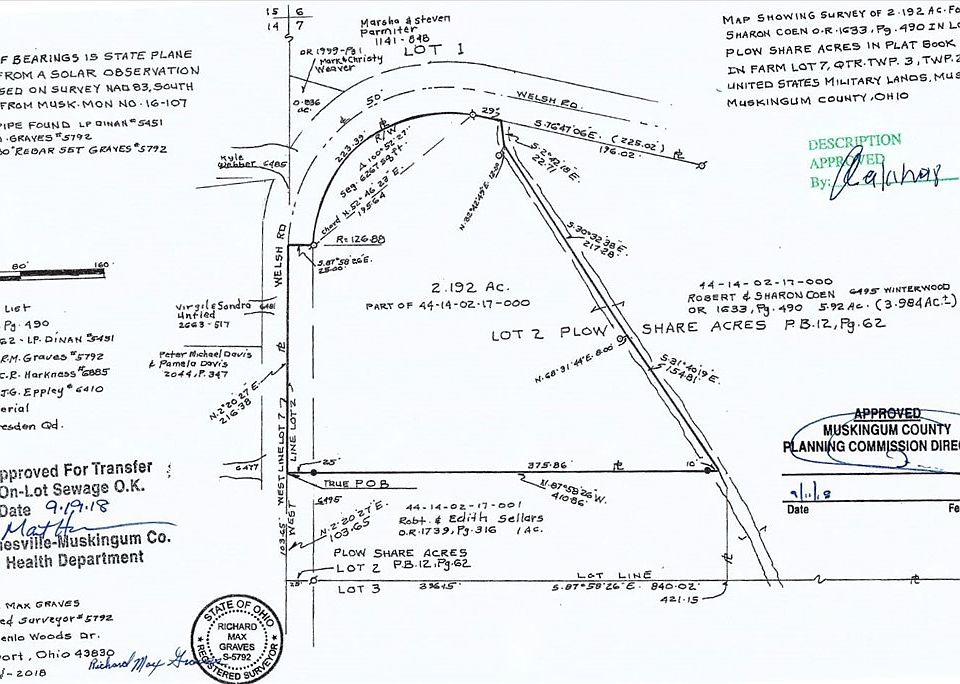 15 | 6
14 | 7
Marsha & steven
Parmiter
1141-848
LOT 1
OR 1999-Pg 1
Mark & Christy
Weaver
0.836
ac.
MAP SHOWING SURVEY OF 2.192 AC. FO
SHARON COEN O.R.1633, Pg. 490 IN LO
PLOW SHARE ACRES IN PLAT BOOK
IN FARM LOT 7, QTR. TWP. 3, TWP. 2
UNITED STATES MILITARY LANDS, MUS
MUSKINGUM COUNTY, OHIO
F BEARINGS IS STATE PLANE
FROM A SOLAR OBSERVATION
SED ON SURVEY NAD 83, SOUTH
FROM MUSK. MON NO. 16-107
PIPE FOUND LP DINAN #5451
GRAVES #5792
30" REBAR SET GRAVES #5792
DESCRIPTION
APPROVED
By:
50'
WELSH RD.
29'
S.76°47'06"E. (225.02')
196.02'
223.39'
R/W
Δ 100°52'27"
Seg. 6267 Sq. ft.
chord N.52°46'23"E.
195.64
Kyle
Webber 6485
S.2°42'18"E.
22.71
N.32°42'49"E. 12.00
R=126.88
S.87°58'26"E.
25.00'
WELSH RD
S.30°32'38"E.
217.28'
80' 160'
2.192 AC.
PART OF 44-14-02-17-000
44-14-02-17-000
ROBERT & SHARON COEN 6495 WINTERWOOD
OR 1633, Pg. 490 5.92 AC. (3.984 AC.±)
LOT 2 PLOW SHARE ACRES P.B.12, Pg. 62
LIST
Pg. 490
62 - L.P. DINAN #5451
R.M. Graves #5792
C.R. Harkness #6885
J.G. Eppley #6410
erial
resden Qd.
Virgil & Sondra 6481
Untied
2663-517
Peter Michael Davis
& Pamela Davis
2044, P. 347
N.2°20'27"E.
216.38
N.68°31'44"E. 8.00'
S.31°40'19"E.
S154.81'
WEST LINE LOT 7
WEST LINE LOT 2
APPROVED
MUSKINGUM COUNTY
PLANNING COMMISSION DIREC
9/11/18
Date Fe
pproved For Transfer
On-Lot Sewage O.K.
Date 9.19.18
nesville-Muskingum Co.
Health Department
6477
25'
375.86'
10'
TRUE P.O.B
N.87°58'26"W.
410.86'
6495
N.2°20'27"E.
103.65
103.65'
44-14-02-17-001
Robt. & Edith Sellars
O.R.1739, Pg. 316 1 AC.
PLOW SHARE ACRES
LOT 2 P.B.12, Pg. 62
25'
LOT 3
396.15'
LOT LINE
S.87°58'26"E. 840.02'
421.15
MAX GRAVES
ed Surveyor #5792
enlo Woods Dr.
port, Ohio 43830
- 2018
Richard Max Graves
STATE OF OHIO
RICHARD
MAX
GRAVES
S-5792
REGISTERED SURVEYOR